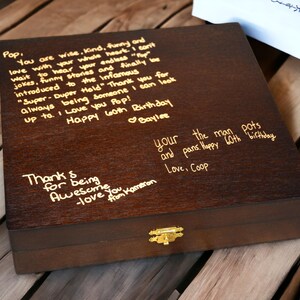 Pop,
You are wise, kind, funny and
love with your whole heart. I can't
wait to hear all the corny
jokes, funny stories and finally be
introduced to the infamous
"Super Duper Hold". Thank you for
always being someone I can look
up to. I Love You Pop!
Happy 60th Birthday
♡Baylee
your the man pots
and pans Happy 60th birthday
Love, Coop
Thanks
for being
Awesome
-love you
from Kameron